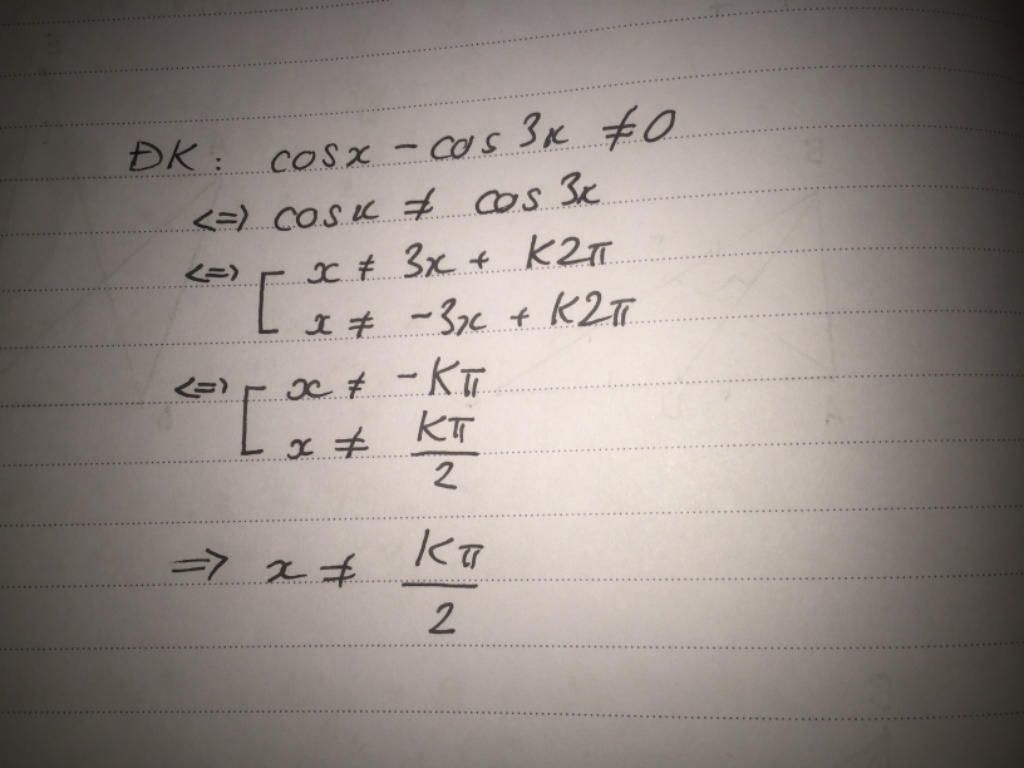 ĐK: cosx - cos 3x ≠ 0
<=> cosx ≠ cos 3x
<=> [ x ≠ 3x + K2π
x ≠ -3x + K2π
<=> [ x ≠ -Kπ
x ≠ Kπ/2
=> x ≠ Kπ/2